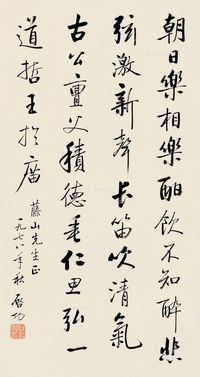 朝日樂相樂酣飲不知醉悲
弦激新聲長笛吹清氣
古公亶父積德垂仁思弘一
道哲王於廣
藤山先生正
一九七八年秋 啓功